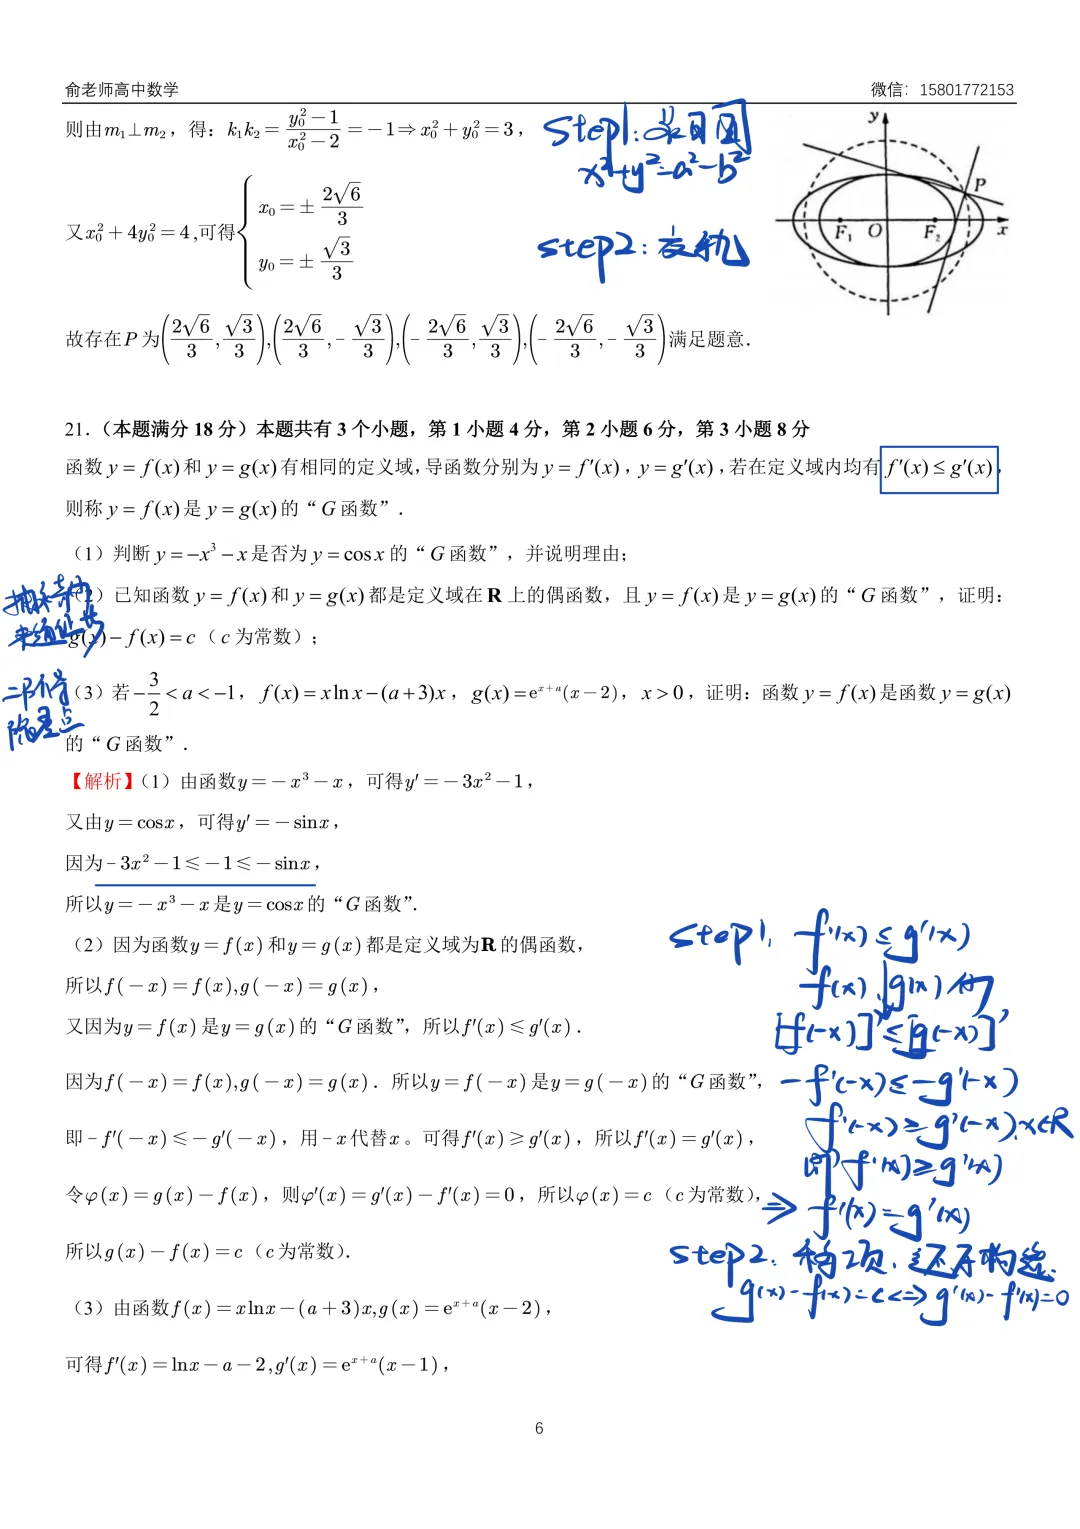 俞老师高中数学 微信：15801772153
则由m₁⊥m₂，得：k₁k₂=(y₀²-1)/(x₀²-2)=-1⇒x₀²+y₀²=3，
step1:
x²+y²=a²-b²
又x₀²+4y₀²=4,可得{x₀=±2√6/3
y₀=±√3/3
step2:
y
P
F₁ O F₂ x
故存在P为(2√6/3,√3/3),(2√6/3,-√3/3),(-2√6/3,√3/3),(-2√6/3,-√3/3)满足题意.
21.（本题满分 18 分）本题共有 3 个小题，第 1 小题 4 分，第 2 小题 6 分，第 3 小题 8 分
函数 y=f(x)和 y=g(x)有相同的定义域,导函数分别为 y=f′(x)，y=g′(x)，若在定义域内均有 f′(x)≤g′(x)，
则称 y=f(x)是 y=g(x)的“G 函数”.
（1）判断 y=-x³-x是否为 y=cosx 的“G 函数”，并说明理由；
（2）已知函数 y=f(x)和 y=g(x)都是定义域在 R 上的偶函数，且 y=f(x)是 y=g(x)的“G 函数”，证明：
g(x)-f(x)=c（c为常数）；
（3）若-3/2<a<-1，f(x)=xlnx-(a+3)x，g(x)=eˣ⁺ᵃ(x-2)，x>0，证明：函数 y=f(x)是函数 y=g(x)
的“G 函数”.
【解析】（1）由函数y=-x³-x，可得y′=-3x²-1，
又由y=cosx，可得y′=-sinx，
因为-3x²-1≤-1≤-sinx，
所以y=-x³-x是y=cosx的“G函数”.
（2）因为函数y=f(x)和y=g(x)都是定义域为R的偶函数，
所以f(-x)=f(x),g(-x)=g(x)，
又因为y=f(x)是y=g(x)的“G函数”，所以f′(x)≤g′(x).
因为f(-x)=f(x),g(-x)=g(x).所以y=f(-x)是y=g(-x)的“G函数”，
即-f′(-x)≤-g′(-x)，用-x代替x。可得f′(x)≥g′(x)，所以f′(x)=g′(x)，
令φ(x)=g(x)-f(x)，则φ′(x)=g′(x)-f′(x)=0，所以φ(x)=c（c为常数），
所以g(x)-f(x)=c（c为常数）.
（3）由函数f(x)=xlnx-(a+3)x,g(x)=eˣ⁺ᵃ(x-2)，
可得f′(x)=lnx-a-2,g′(x)=eˣ⁺ᵃ(x-1)，
step1, f′(x)≤g′(x)
f(x) g(x)
[f(-x)]′≤[g(-x)]′
-f′(-x)≤-g′(-x)
f′(-x)≥g′(-x),x∈R
即 f′(x)≥g′(x)
⇒ f′(x)=g′(x)
step2. 移项、还原构造.
g(x)-f(x)=c<=>g′(x)-f′(x)=0
6